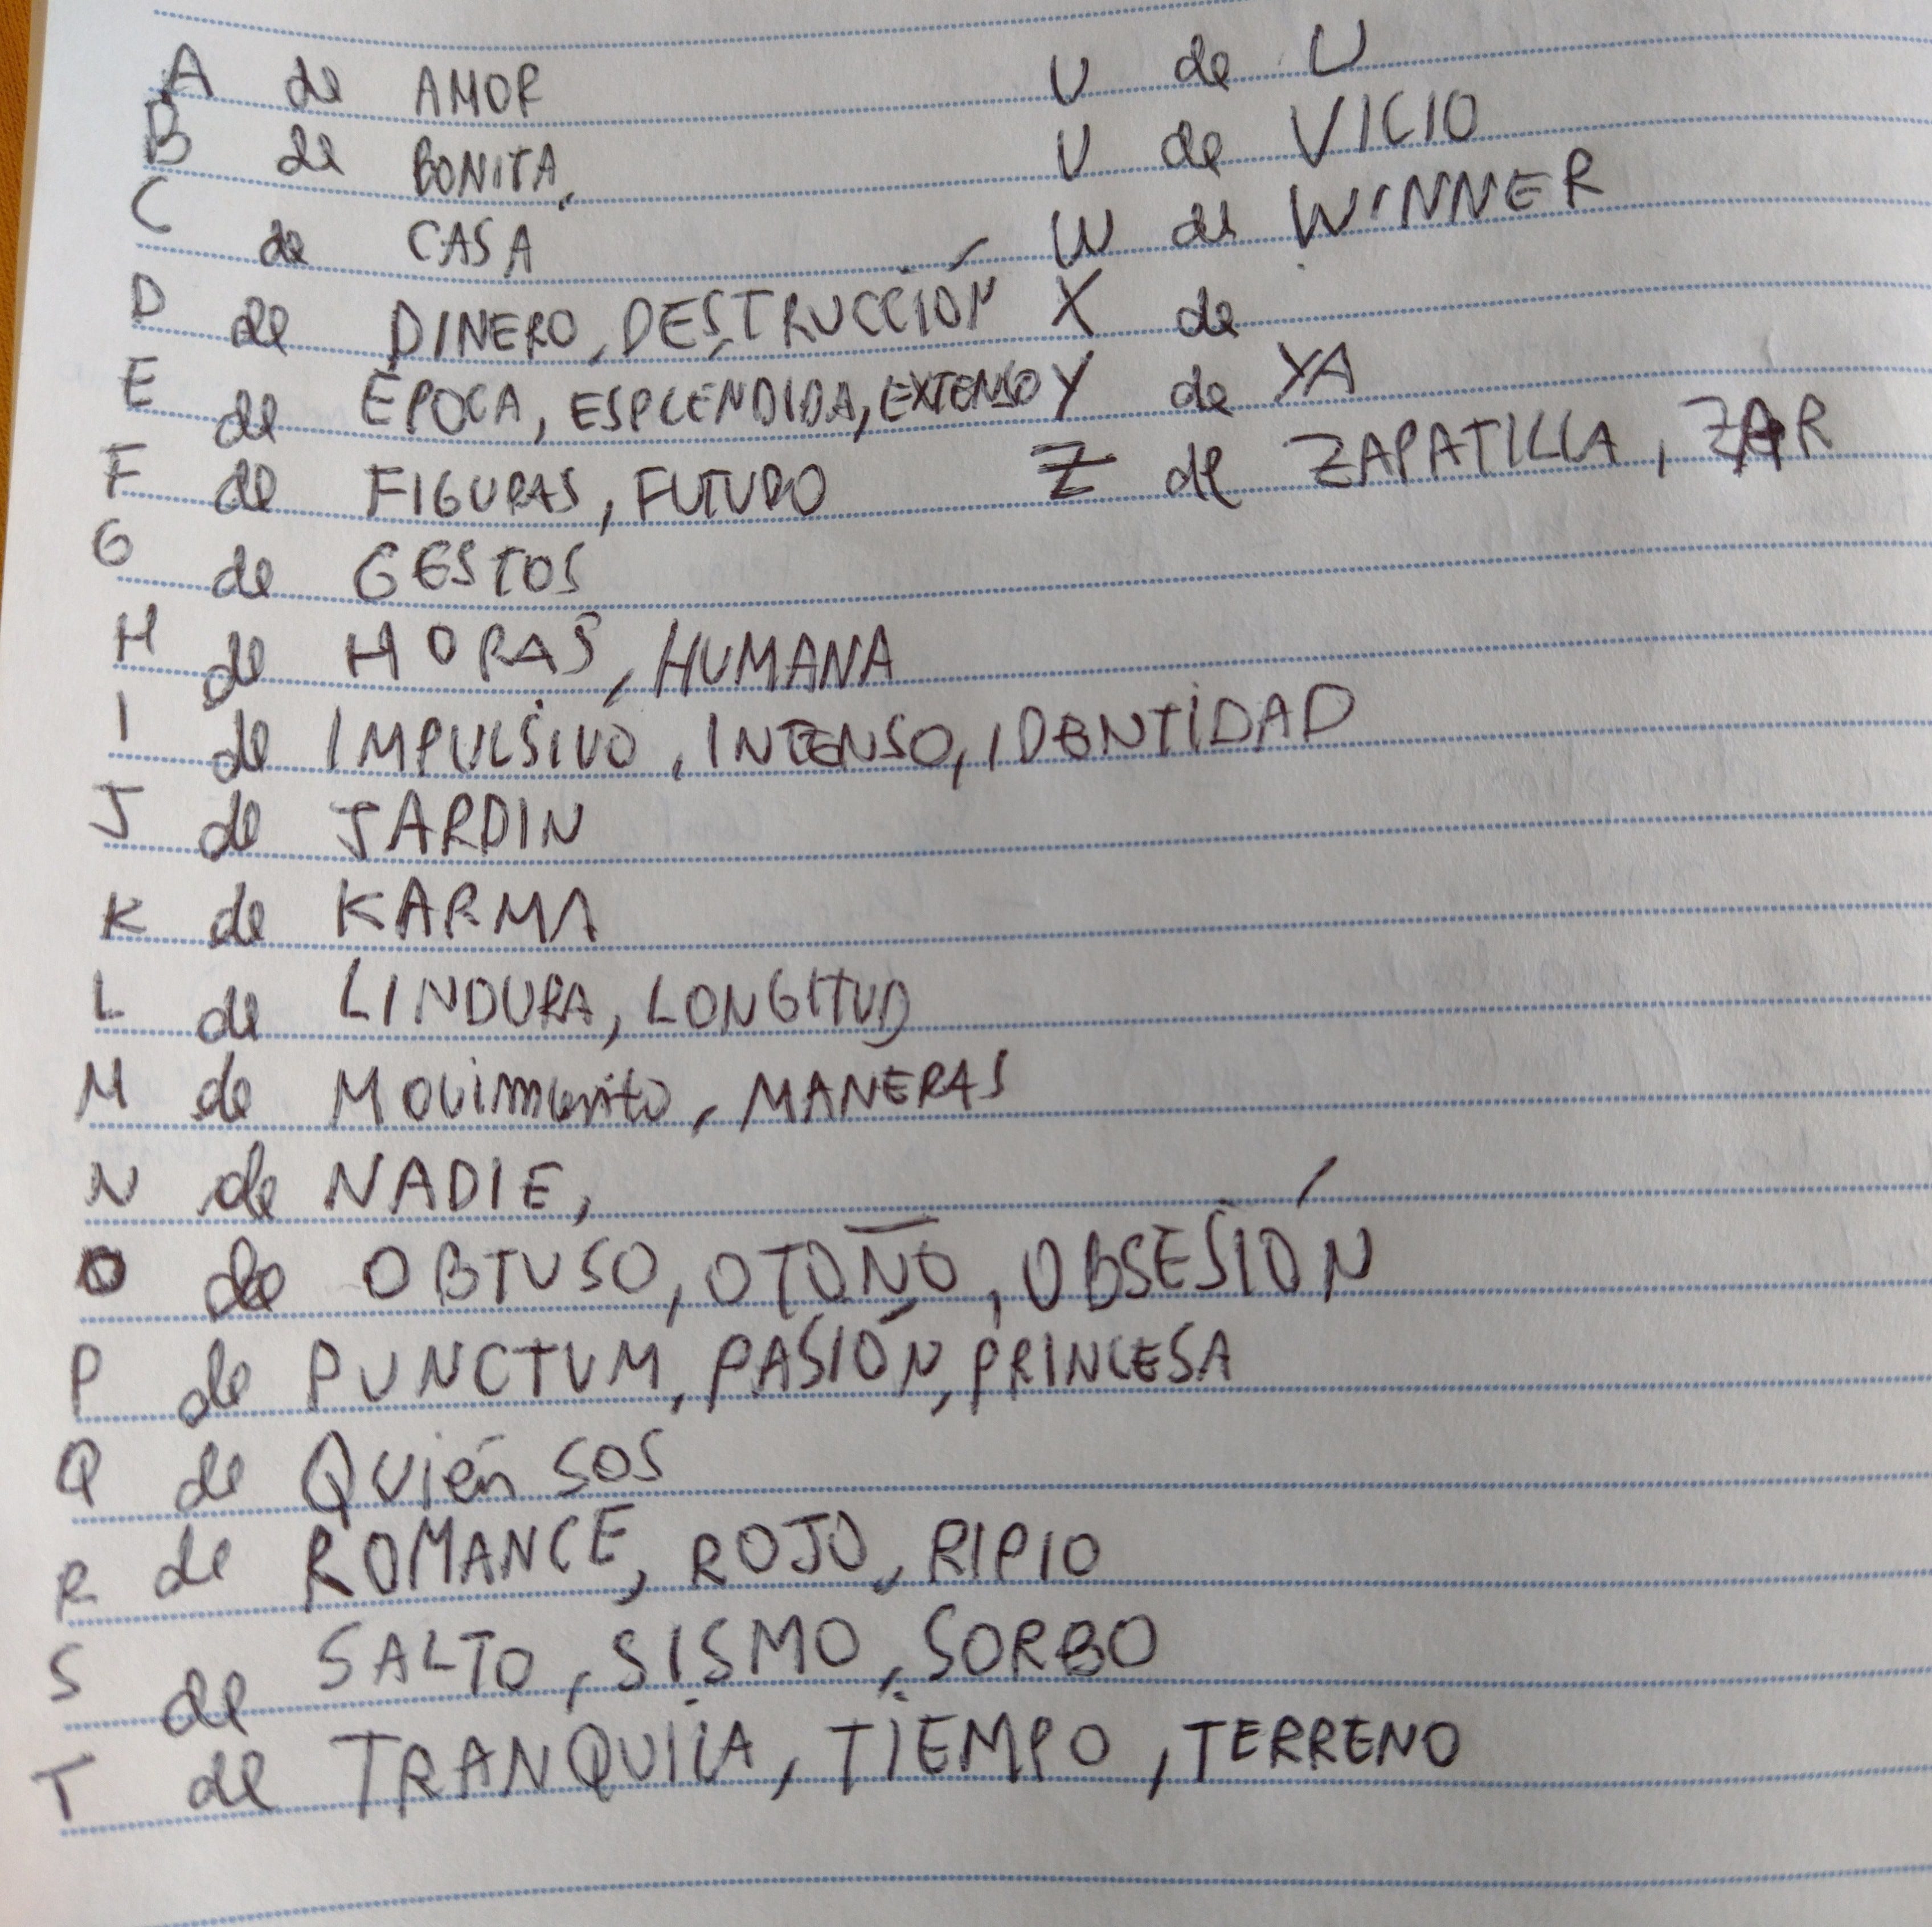 A de AMOR
B de BONITA,
C de CASA
D de DINERO, DESTRUCCIÓN
E de ÉPOCA, ESPLENDIDA, EXTENSO
F de FIGURAS, FUTURO
G de GESTOS
H de HORAS, HUMANA
I de IMPULSIVO, INTENSO, IDENTIDAD
J de JARDIN
K de KARMA
L de LINDURA, LONGITUD
M de Movimiento, MANERAS
N de NADIE,
O de OBTUSO, OTOÑO, OBSESIÓN
P de PUNCTUM, PASIÓN, PRINCESA
Q de Quién sos
R de ROMANCE, ROJO, RIPIO
S de SALTO, SISMO, SORBO
T de TRANQUILA, TIEMPO, TERRENO
U de U
V de VICIO
W de WINNER
X de
Y de YA
Z de ZAPATILLA, ZAR